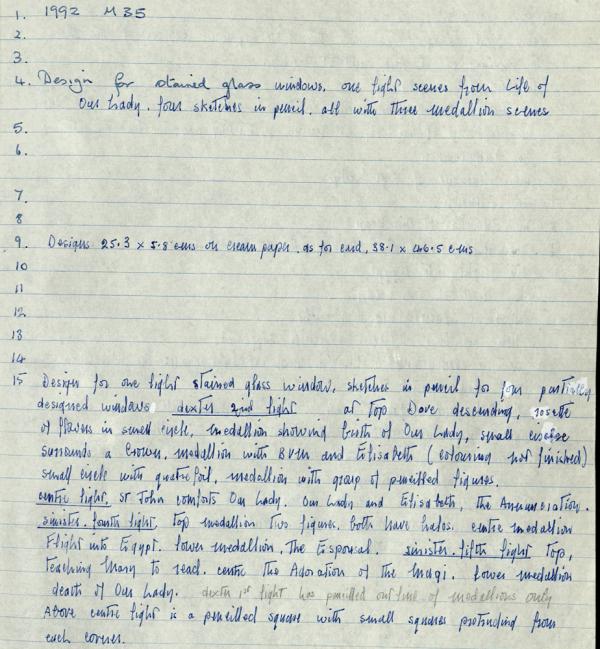 1. 1992 M35
2.
3.
4. Design for stained glass windows. one light scenes from Life of
Our Lady. four sketches in pencil. all with three medallion scenes
5.
6.
7.
8
9. Designs 25.3 x 5.8 cms on cream paper. as for card, 38.1 x 46.5 cms
10
11
12
13
14
15 Design for one light stained glass window, sketches in pencil for four partially
designed windows dexter 2nd light at top Dove descending, rosette
of flowers in small circle, medallion showing birth of Our Lady, small circle
surrounds a Crown, medallion with BVM and Elisabeth (colouring not finished)
small circle with quatrefoil, medallion with group of pencilled figures.
centre light. St John comforts Our Lady. Our Lady and Elisabeth, the Annunciation.
sinister. fourth light, top medallion two figures, both have halos, centre medallion
Flight into Egypt. lower medallion. The Espousal. sinister. fifth light Top,
teaching Mary to read. centre the Adoration of the Magi. lower medallion
death of Our Lady. dexter 1st light has pencilled outline of medallions only
Above centre light is a pencilled square with small squares protruding from
each corner.